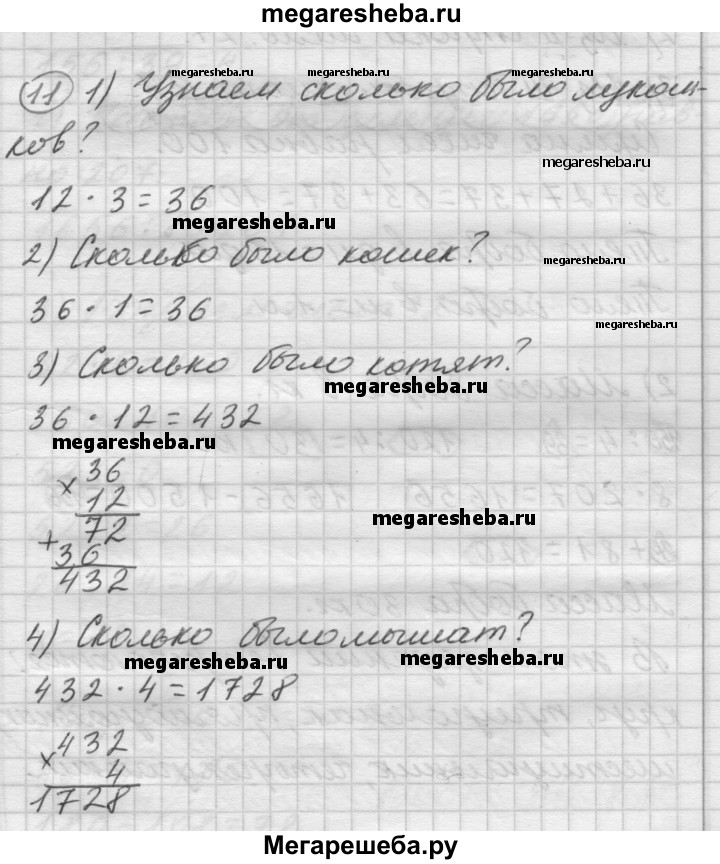 megaresheba.ru
11 1) Узнаем сколько было лукош-
megaresheba.ru megaresheba.ru megaresheba.ru
ков?
megaresheba.ru
12 · 3 = 36
megaresheba.ru
2) Сколько было кошек?
megaresheba.ru
36 · 1 = 36
megaresheba.ru
3) Сколько было котят?
megaresheba.ru
36 · 12 = 432
megaresheba.ru
× 36
12
72
megaresheba.ru
+ 36
432
4) Сколько было мышат?
megaresheba.ru megaresheba.ru
432 · 4 = 1728
× 432
4
1728
Мегарешеба.ру